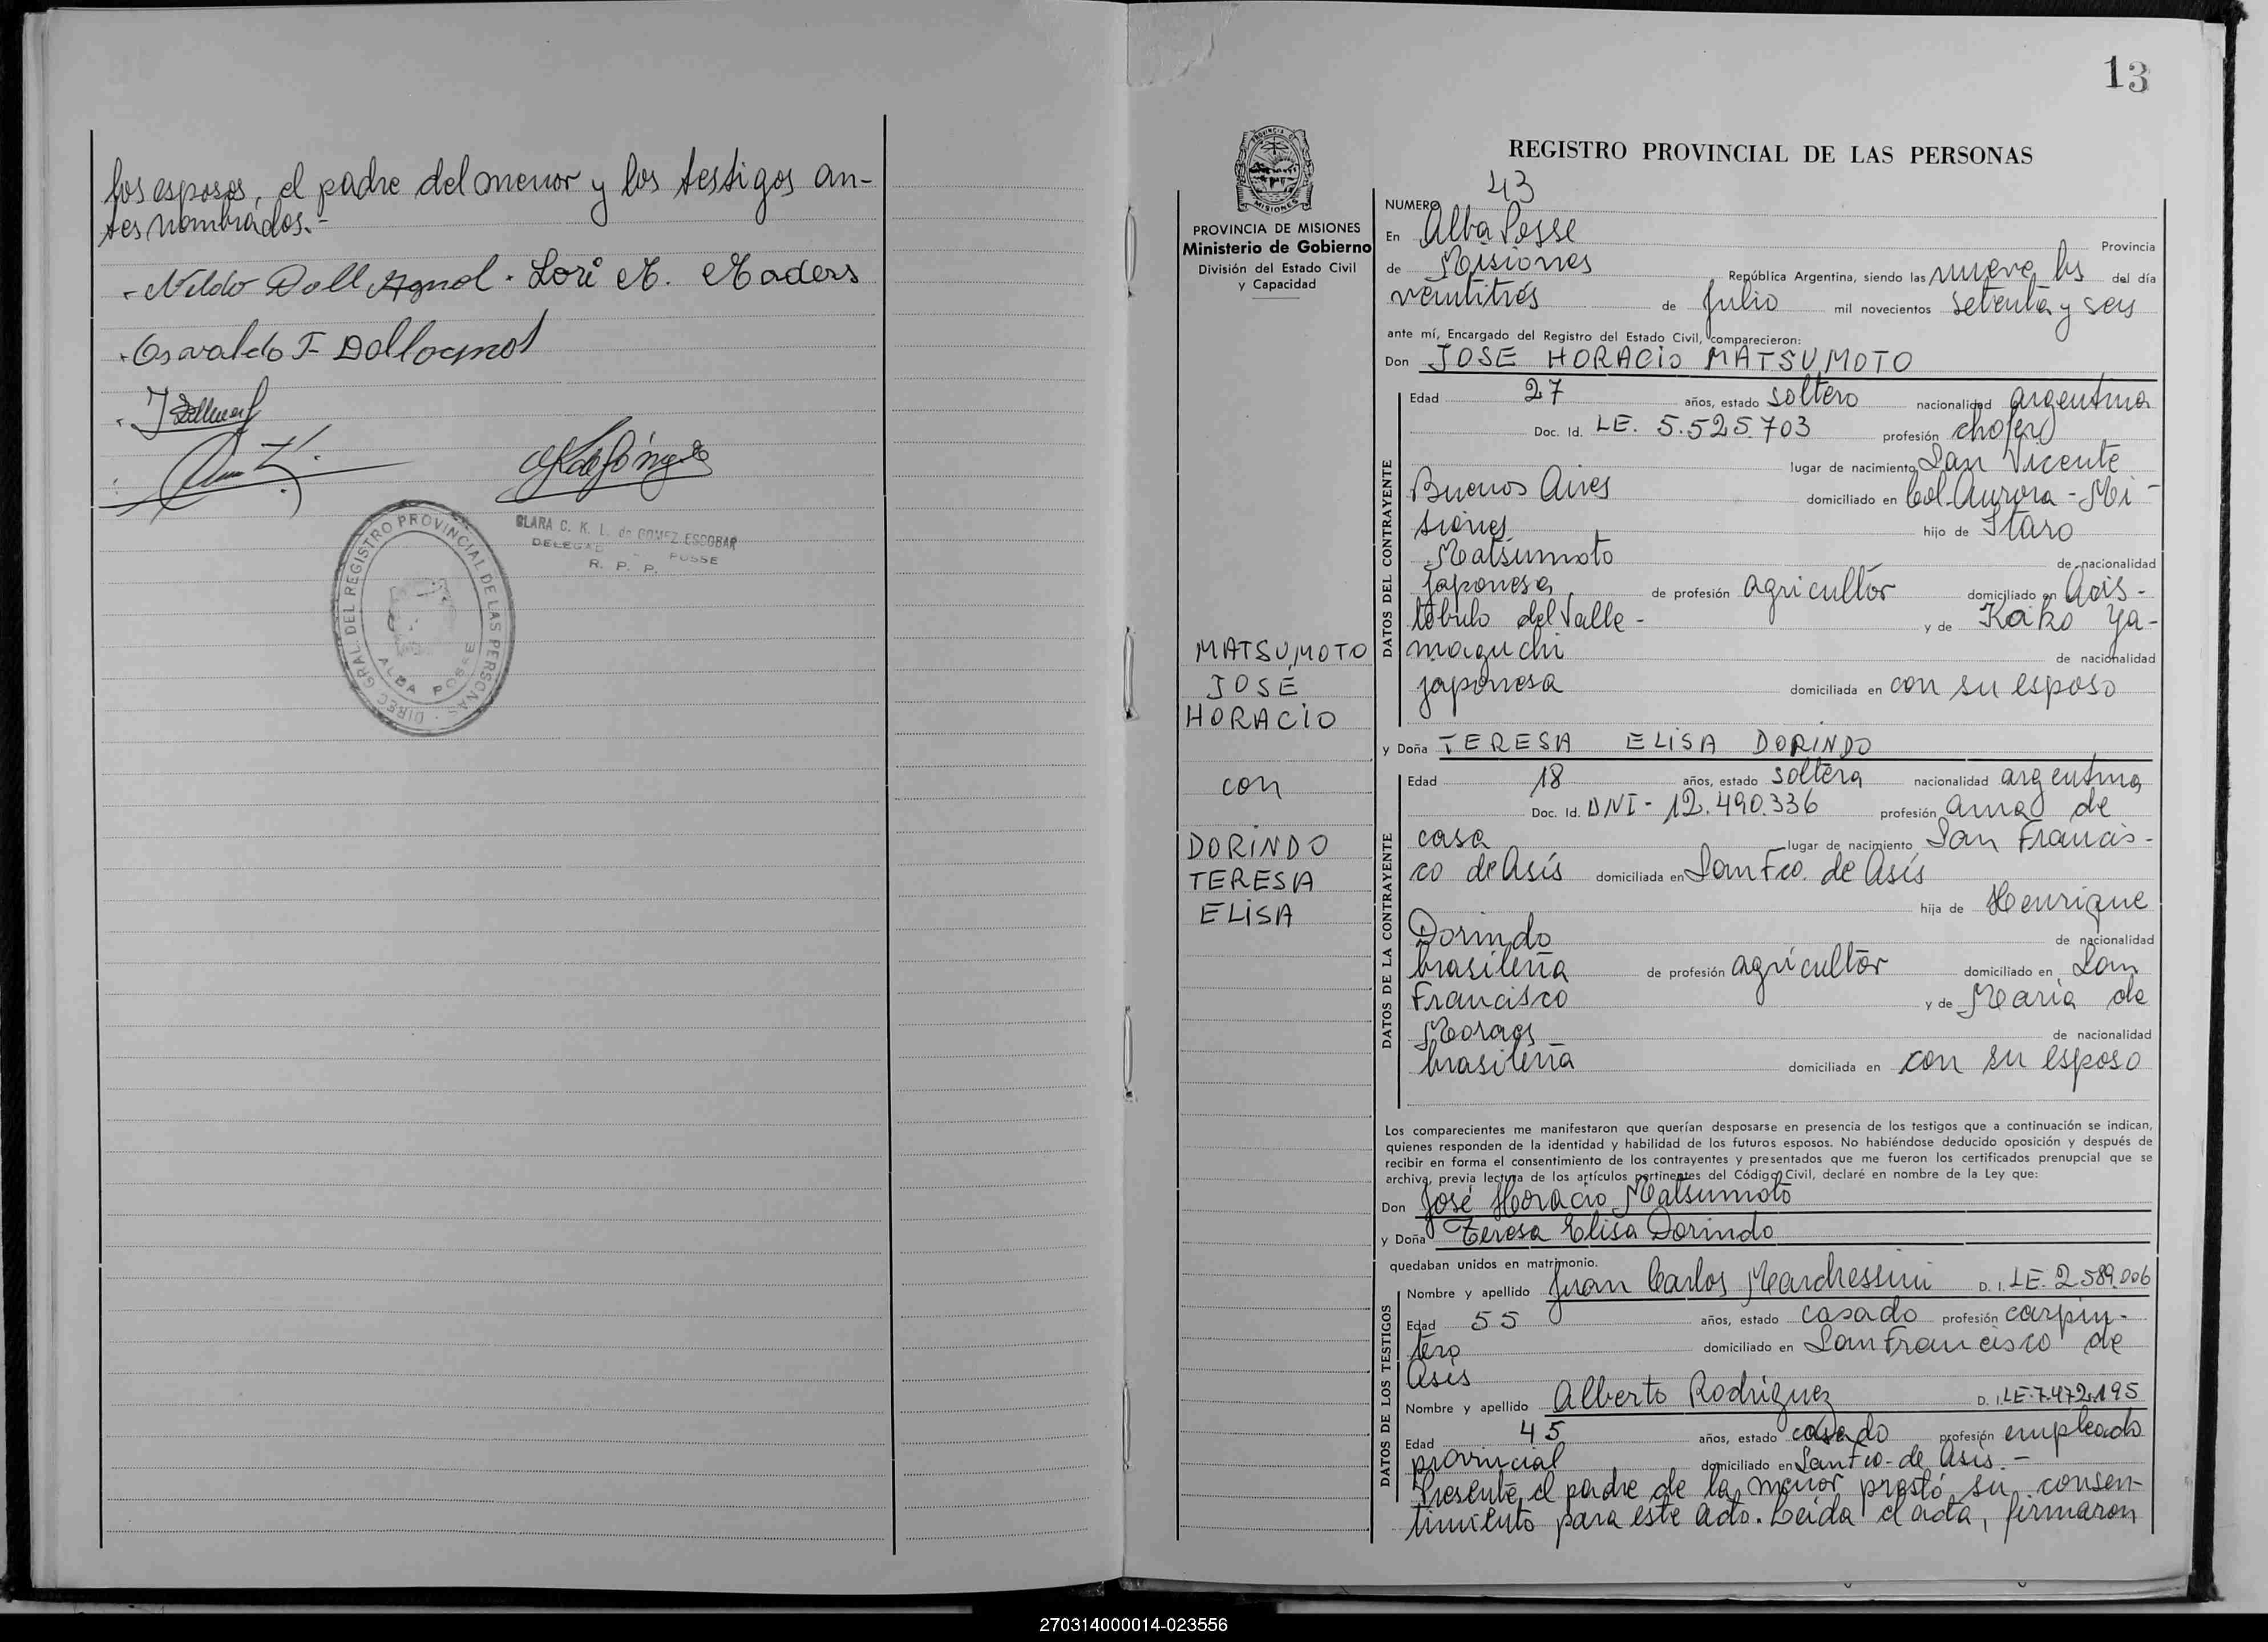 los esposos, el padre del menor y los testigos an-
tes nombrados.-
- Nildo Dall Agnol - Lori M. Maders
- Osvaldo F- Dallagnol
DIREC. GRAL DEL REGISTRO PROVINCIAL DE LAS PERSONAS
ALBA POSSE
CLARA C. K. L. de GOMEZ ESCOBAR
DELEGAD POSSE
R. P. P.
13
REGISTRO PROVINCIAL DE LAS PERSONAS
PROVINCIA DE MISIONES
Ministerio de Gobierno
División del Estado Civil
y Capacidad
MATSUMOTO
JOSÉ
HORACIO
con
DORINDO
TERESA
ELISA
NUMERO 43
En Alba Posse Provincia
de Misiones República Argentina, siendo las nueve hs del día
veintitrés de Julio mil novecientos setenta y seis
ante mí, Encargado del Registro del Estado Civil, comparecieron:
Don JOSE HORACIO MATSUMOTO
DATOS DEL CONTRAYENTE
Edad 27 años, estado soltero nacionalidad argentina
Doc. Id. LE. 5.525.703 profesión chofer
lugar de nacimiento San Vicente
Buenos Aires domiciliado en Col. Aurora - Mi-
siones hijo de Itaro
Matsumoto de nacionalidad
japonesa de profesión agricultor domiciliado en Aris-
tóbulo del Valle - y de Kako Ya-
maguchi de nacionalidad
japonesa domiciliada en con su esposo
y Doña TERESA ELISA DORINDO
DATOS DE LA CONTRAYENTE
Edad 18 años, estado soltera nacionalidad argentina
Doc. Id. DNI - 12.490.336 profesión ama de
casa lugar de nacimiento San Francis-
co de Asís domiciliada en San Fco. de Asís
hija de Henrique
Dorindo de nacionalidad
brasileña de profesión agricultor domiciliado en San
Francisco y de María de
Moraes de nacionalidad
brasileña domiciliada en con su esposo
Los comparecientes me manifestaron que querían desposarse en presencia de los testigos que a continuación se indican,
quienes responden de la identidad y habilidad de los futuros esposos. No habiéndose deducido oposición y después de
recibir en forma el consentimiento de los contrayentes y presentados que me fueron los certificados prenupcial que se
archiva, previa lectura de los artículos pertinentes del Código Civil, declaré en nombre de la Ley que:
Don José Horacio Matsumoto
y Doña Teresa Elisa Dorindo
quedaban unidos en matrimonio.
DATOS DE LOS TESTIGOS
Nombre y apellido Juan Carlos Marchessini D. I. LE. 2.589.006
Edad 55 años, estado casado profesión carpin-
tero domiciliado en San Francisco de
Asís
Nombre y apellido Alberto Rodriguez D. I. LE-7.472.195
Edad 45 años, estado casado profesión empleado
provincial domiciliado en San Fco- de Asís.-
Presente el padre de la menor prestó su consen-
timiento para este acto. Leída el acta, firmaron
270314000014-023556